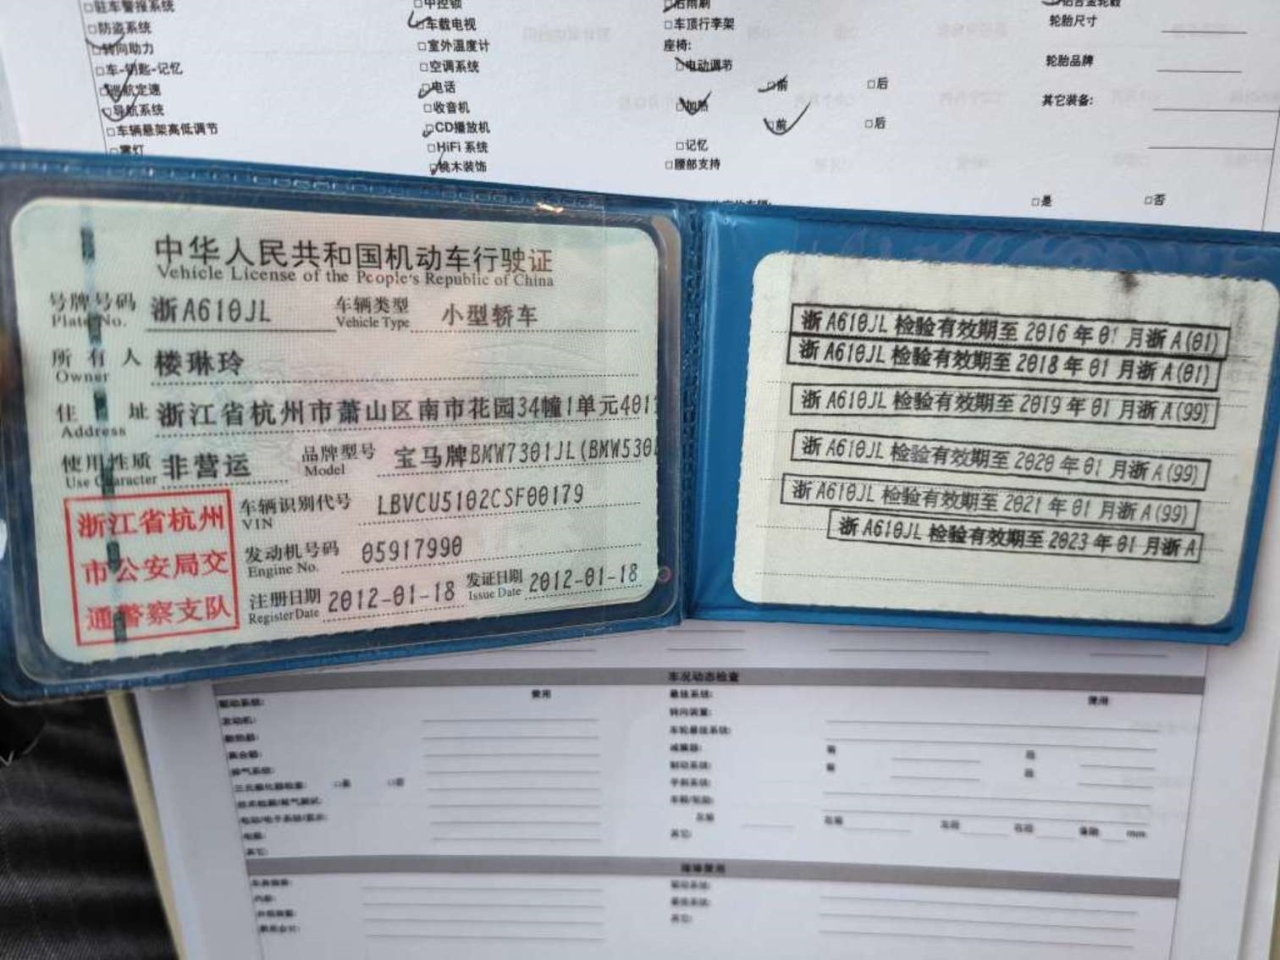 驻车警报系统
中控锁
后雨刷
铝合金轮毂
防盗系统
车载电视
车顶行李架
轮胎尺寸
转向助力
室外温度计
座椅:
车-钥匙-记忆
空调系统
电动调节
轮胎品牌
巡航定速
电话
前
后
导航系统
收音机
加热
其它装备:
车辆悬架高低调节
CD播放机
前
后
雾灯
HiFi 系统
记忆
桃木装饰
腰部支持
是
否
中华人民共和国机动车行驶证
Vehicle License of the People's Republic of China
号牌号码 浙A610JL 车辆类型 小型轿车
Plate No. Vehicle Type
所有人 楼琳玲
Owner
住址 浙江省杭州市萧山区南市花园34幢1单元401
Address
使用性质 非营运 品牌型号 宝马牌BMW7301JL(BMW530
Use Character Model
浙江省杭州
市公安局交
通警察支队
车辆识别代号 LBVCU5102CSF00179
VIN
发动机号码 05917990
Engine No.
注册日期 2012-01-18 发证日期 2012-01-18
Register Date Issue Date
浙A610JL 检验有效期至 2016 年 01 月浙 A(01)
浙 A610JL 检验有效期至 2018 年 01 月浙 A(01)
浙 A610JL 检验有效期至 2019 年 01 月浙 A(99)
浙 A610JL 检验有效期至 2020 年 01 月浙 A(99)
浙 A610JL 检验有效期至 2021 年 01 月浙 A(99)
浙 A610JL 检验有效期至 2023 年 01 月浙 A
车况动态检查
费用
费用
驱动系统:
悬挂系统:
发动机:
转向装置:
车轮悬挂系统:
离合器:
减震器:
前
后
排气系统:
制动系统:
前
后
是
否
其它:
mm
其它:
其它: